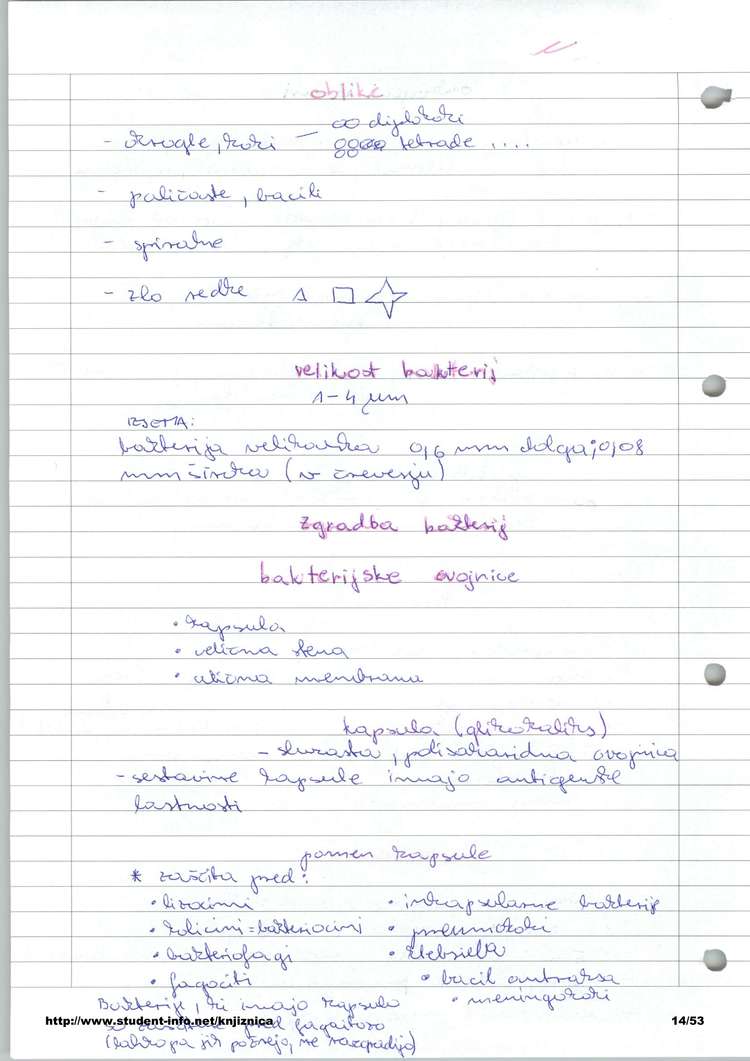 oblike
- okrogle, koki — diplokoki
tetrade ....
- paličaste, bacili
- spiralne
- zlo redke
velikost bakterij
1-4 μm
IZJEMA:
bakterija velikanka 0,6 mm dolga; 0,08
mm široka (v črevesju)
zgradba bakterij
bakterijske ovojnice
• kapsula
• celična stena
• celična membrana
kapsula (glikokaliks)
- sluzasta, polisaharidna ovojnica
- sestavine kapsule imajo antigenske
lastnosti
pomen kapsule
* zaščita pred:
• lizocimi
• kolicini = bakteriocini
• bakteriofagi
• fagociti
• inkapsularne bakterije
• pneumokoki
• klebsiela
• bacil antraksa
• meningokoki
Bakterije, ki imajo kapsulo
pred fagocitozo
(lahko pa jih požrejo, ne razgradijo)
http://www.student-info.net/knjiznica
14/53